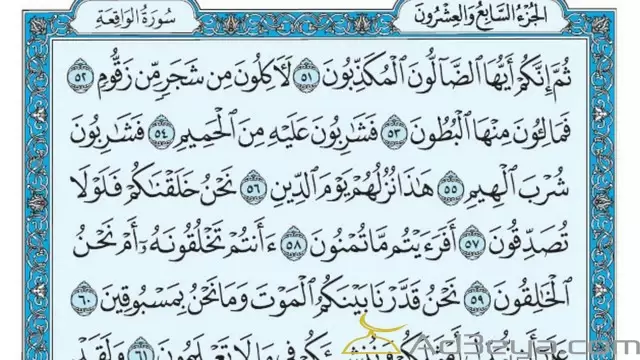 الجُزْءُ السَّابِعُ وَالعِشْرُونَ
سُورَةُ الوَاقِعَةِ
ثُمَّ إِنَّكُمْ أَيُّهَا الضَّآلُّونَ الْمُكَذِّبُونَ ٥١ لَأَكِلُونَ مِن شَجَرٍ مِّن زَقُّومٍ ٥٢
فَمَالِـُٔونَ مِنْهَا الْبُطُونَ ٥٣ فَشَارِبُونَ عَلَيْهِ مِنَ الْحَمِيمِ ٥٤ فَشَارِبُونَ
شُرْبَ الْهِيمِ ٥٥ هَٰذَا نُزُلُهُمْ يَوْمَ الدِّينِ ٥٦ نَحْنُ خَلَقْنَاكُمْ فَلَوْلَا
تُصَدِّقُونَ ٥٧ أَفَرَءَيْتُم مَّا تُمْنُونَ ٥٨ ءَأَنتُمْ تَخْلُقُونَهُۥٓ أَمْ نَحْنُ
الْخَالِقُونَ ٥٩ نَحْنُ قَدَّرْنَا بَيْنَكُمُ الْمَوْتَ وَمَا نَحْنُ بِمَسْبُوقِينَ ٦٠
وَنُنشِئَكُمْ فِي مَا لَا تَعْلَمُونَ ٦١ وَلَقَدْ
Ad3eya.com